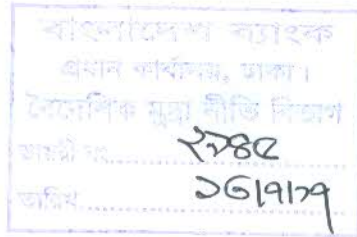 বাংলাদেশ ব্যাংক
প্রধান কার্যালয়, ঢাকা।
বৈদেশিক মুদ্রা নীতি বিভাগ
ডায়রী নং..........
তারিখ..........